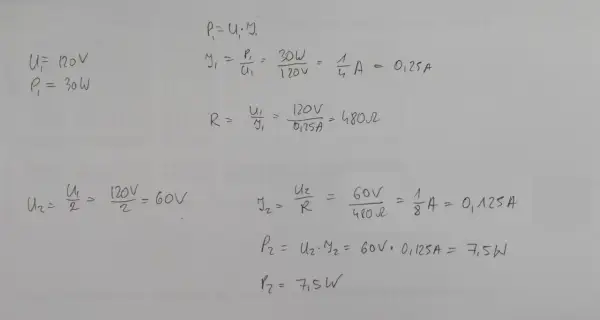 P₁ = U₁·I₁
U₁ = 120V
P₁ = 30W
I₁ = P₁/U₁ = 30W/120V = 1/4 A = 0,25A
R = U₁/I₁ = 120V/0,25A = 480Ω
U₂ = U₁/2 = 120V/2 = 60V
I₂ = U₂/R = 60V/480Ω = 1/8 A = 0,125A
P₂ = U₂·I₂ = 60V·0,125A = 7,5W
P₂ = 7,5W